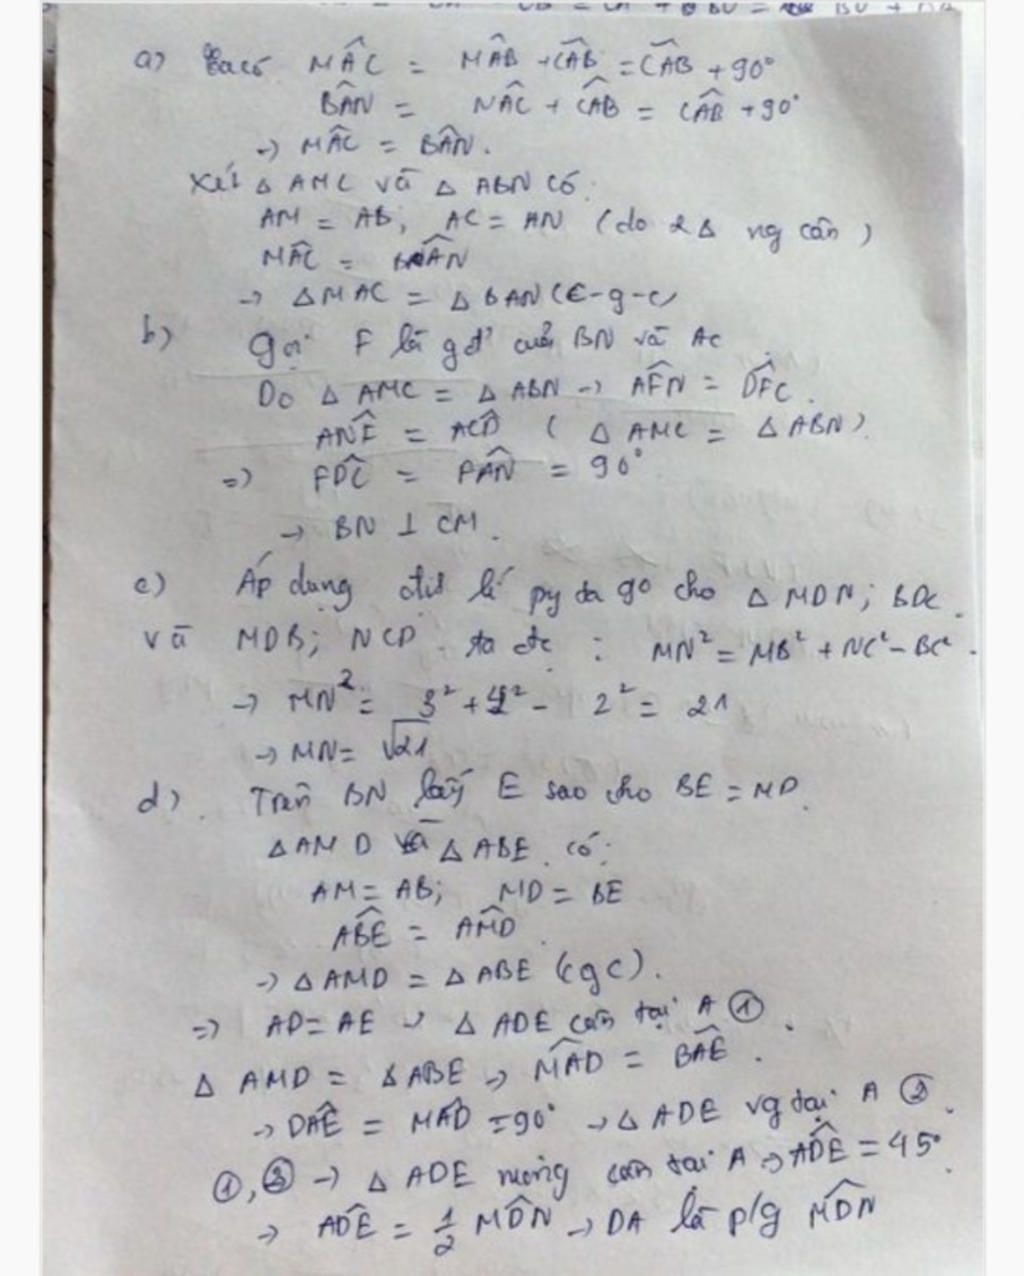 a) Ta có MÂC = MÂB + CÂB = CÂB + 90°
BÂN = NÂC + CÂB = CÂB + 90°
→ MÂC = BÂN.
Xét △ AMC và △ ABN có:
AM = AB; AC = AN (do 2 △ vg cân)
MÂC = BÂN
→ △ MAC = △ BAN (c-g-c)
b) Gọi F là gđ của BN và AC
Do △ AMC = △ ABN → AF̂N = DF̂C.
AN̂F = AĈD (△ AMC = △ ABN)
=) FD̂C = FÂN = 90°
→ BN ⊥ CM.
c) Áp dụng đlí py ta go cho △ MDN; BDC
và MDB; NCD ta đc : MN² = MB² + NC² - BC².
→ MN² = 3² + 4² - 2² = 21
→ MN = √21
d). Trên BN lấy E sao cho BE = MD.
△ AMD và △ ABE có:
AM = AB; MD = BE
AB̂E = AM̂D
→ △ AMD = △ ABE (cgc).
=> AD = AE → △ ADE cân tại A ①.
△ AMD = △ ABE → MÂD = BÂE.
→ DÂE = MÂD = 90° → △ ADE vg tại A ②.
①, ② → △ ADE vuông cân tại A → AD̂E = 45°
→ AD̂E = 1/2 MD̂N → DA là p/g MD̂N